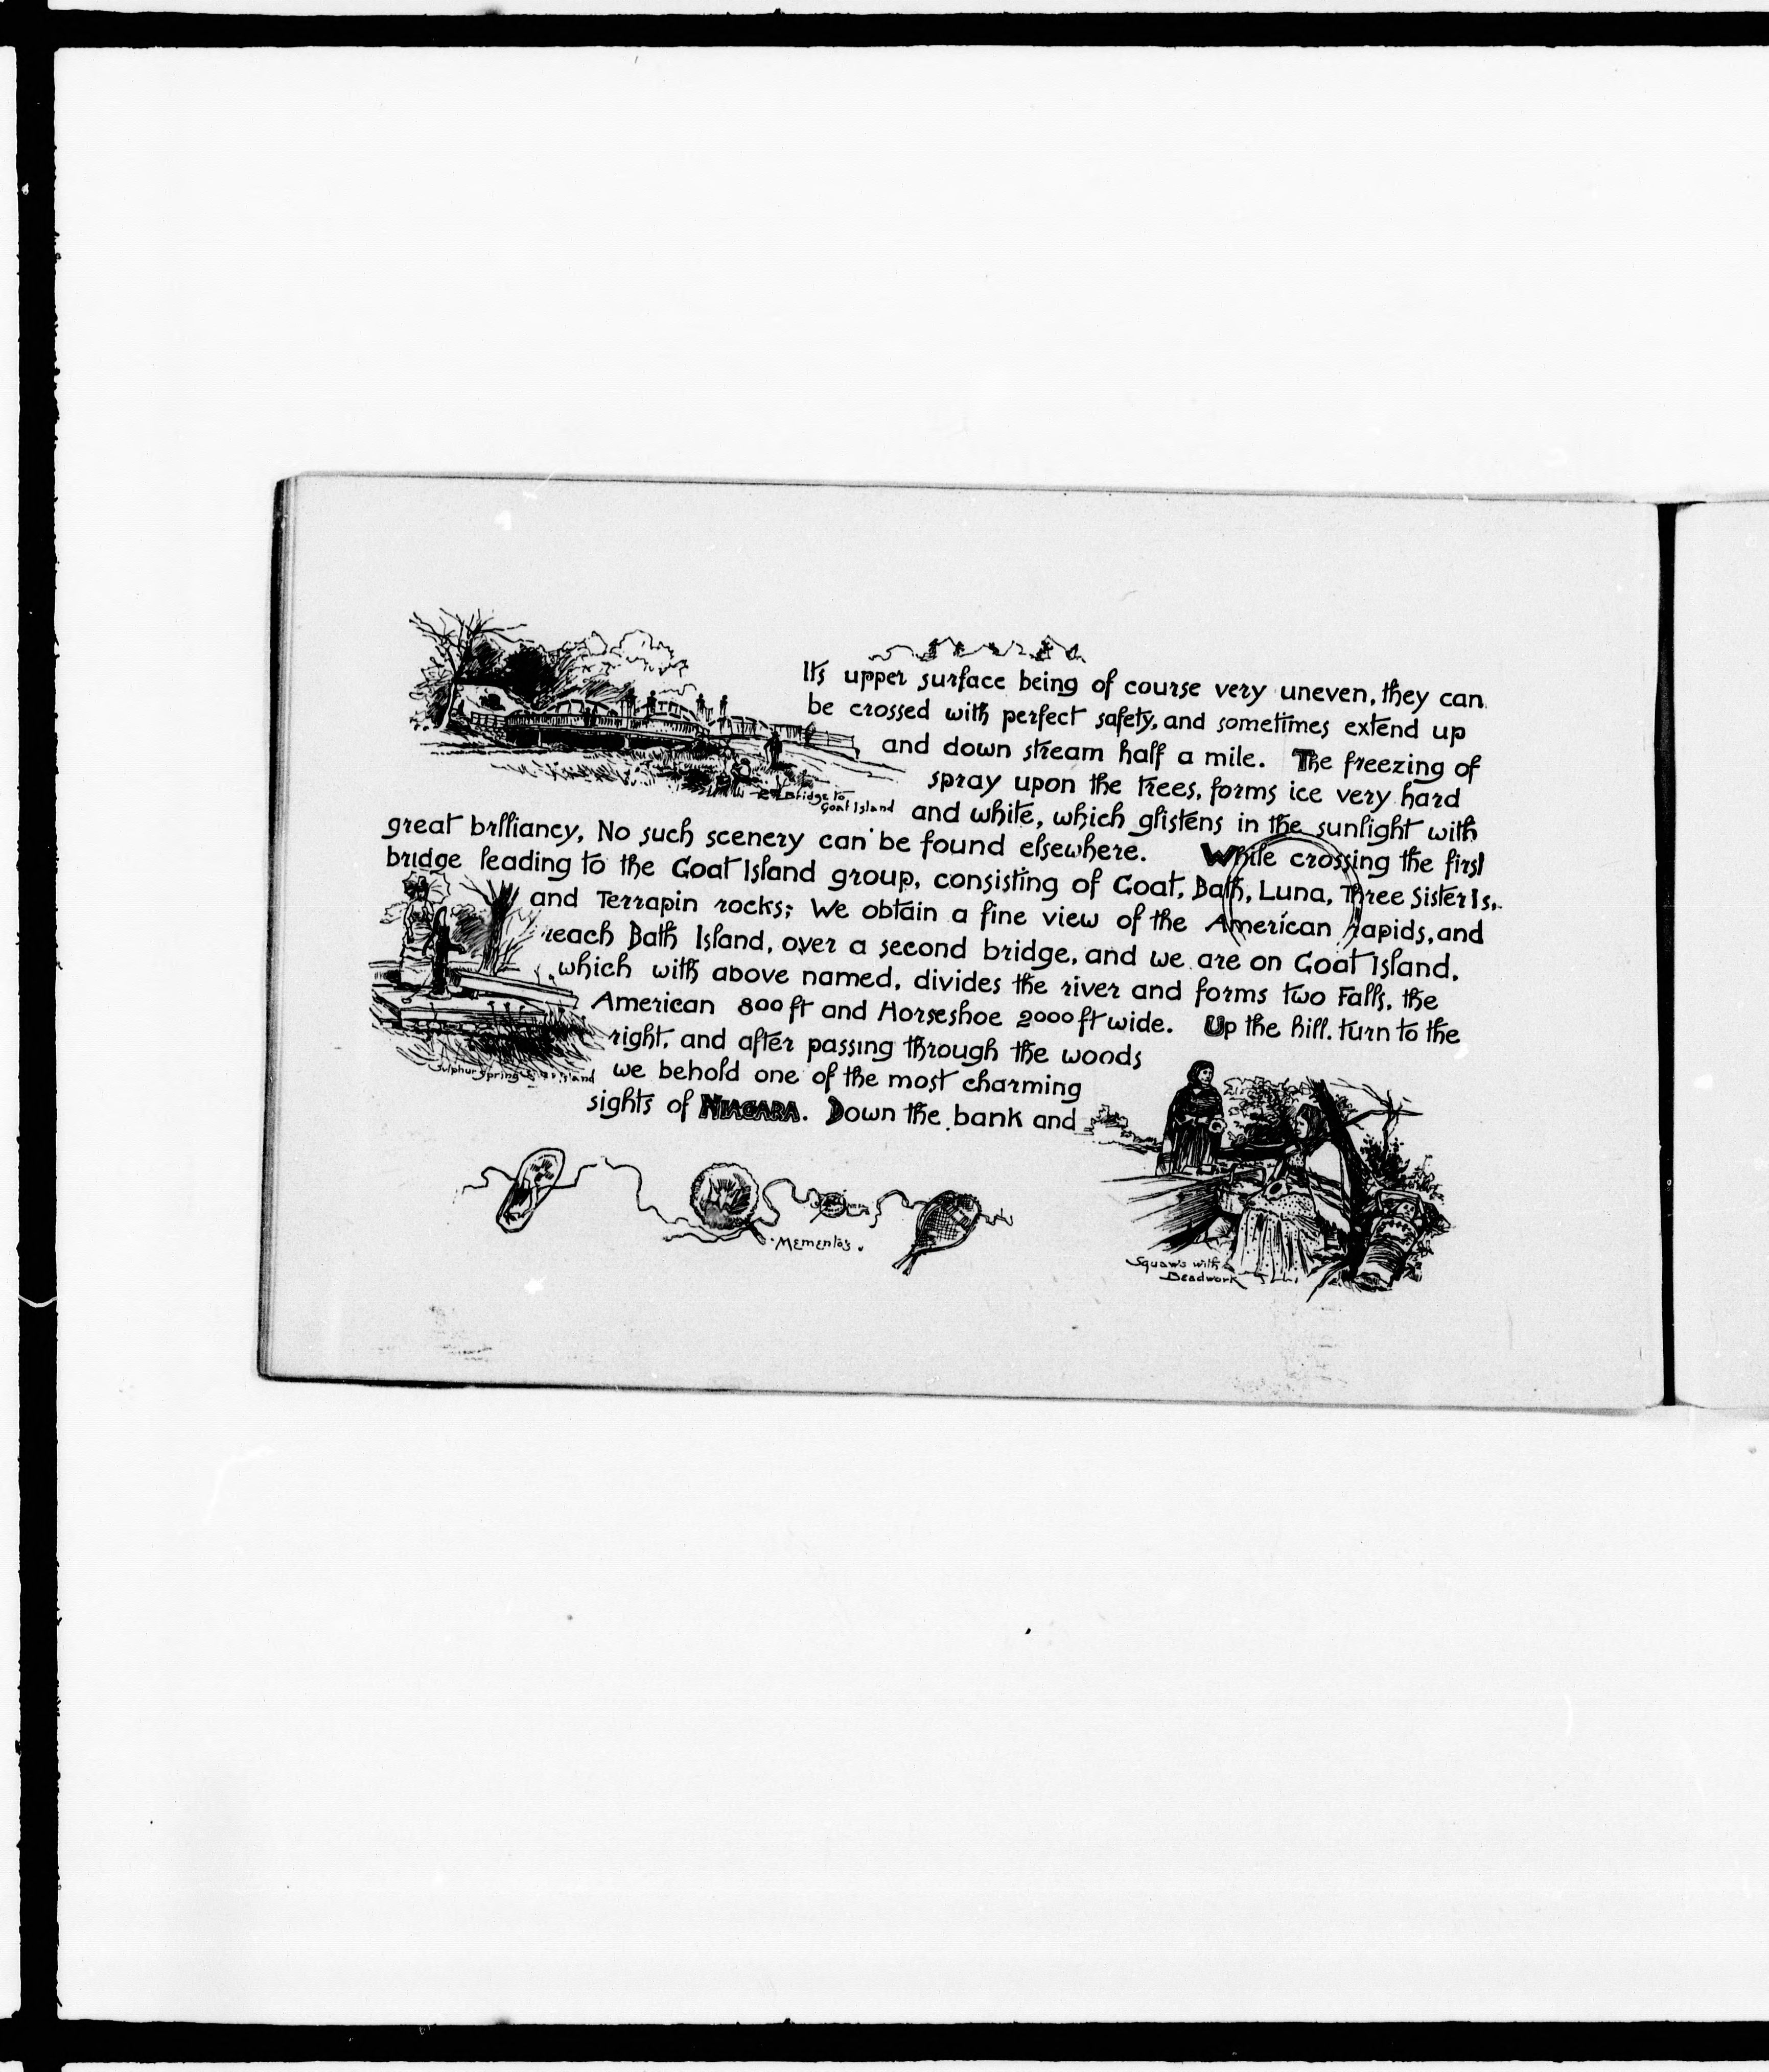 Its upper surface being of course very uneven, they can
be crossed with perfect safety, and sometimes extend up
and down stream half a mile. The freezing of
spray upon the trees, forms ice very hard
and white, which glistens in the sunlight with
great brlliancy, No such scenery can be found elsewhere. While crossing the first
bridge leading to the Goat Island group, consisting of Goat, Bath, Luna, Three Sister Is,
and Terrapin rocks; We obtain a fine view of the American rapids, and
reach Bath Island, over a second bridge, and we are on Goat Island,
which with above named, divides the river and forms two Falls, the
American 800 ft and Horseshoe 2000 ft wide. Up the hill, turn to the
right, and after passing through the woods
we behold one of the most charming
sights of NIAGARA. Down the bank and
Bridge to
Goat Island
Sulphur Spring
Island
Mementos.
Squaws with
Beadwork